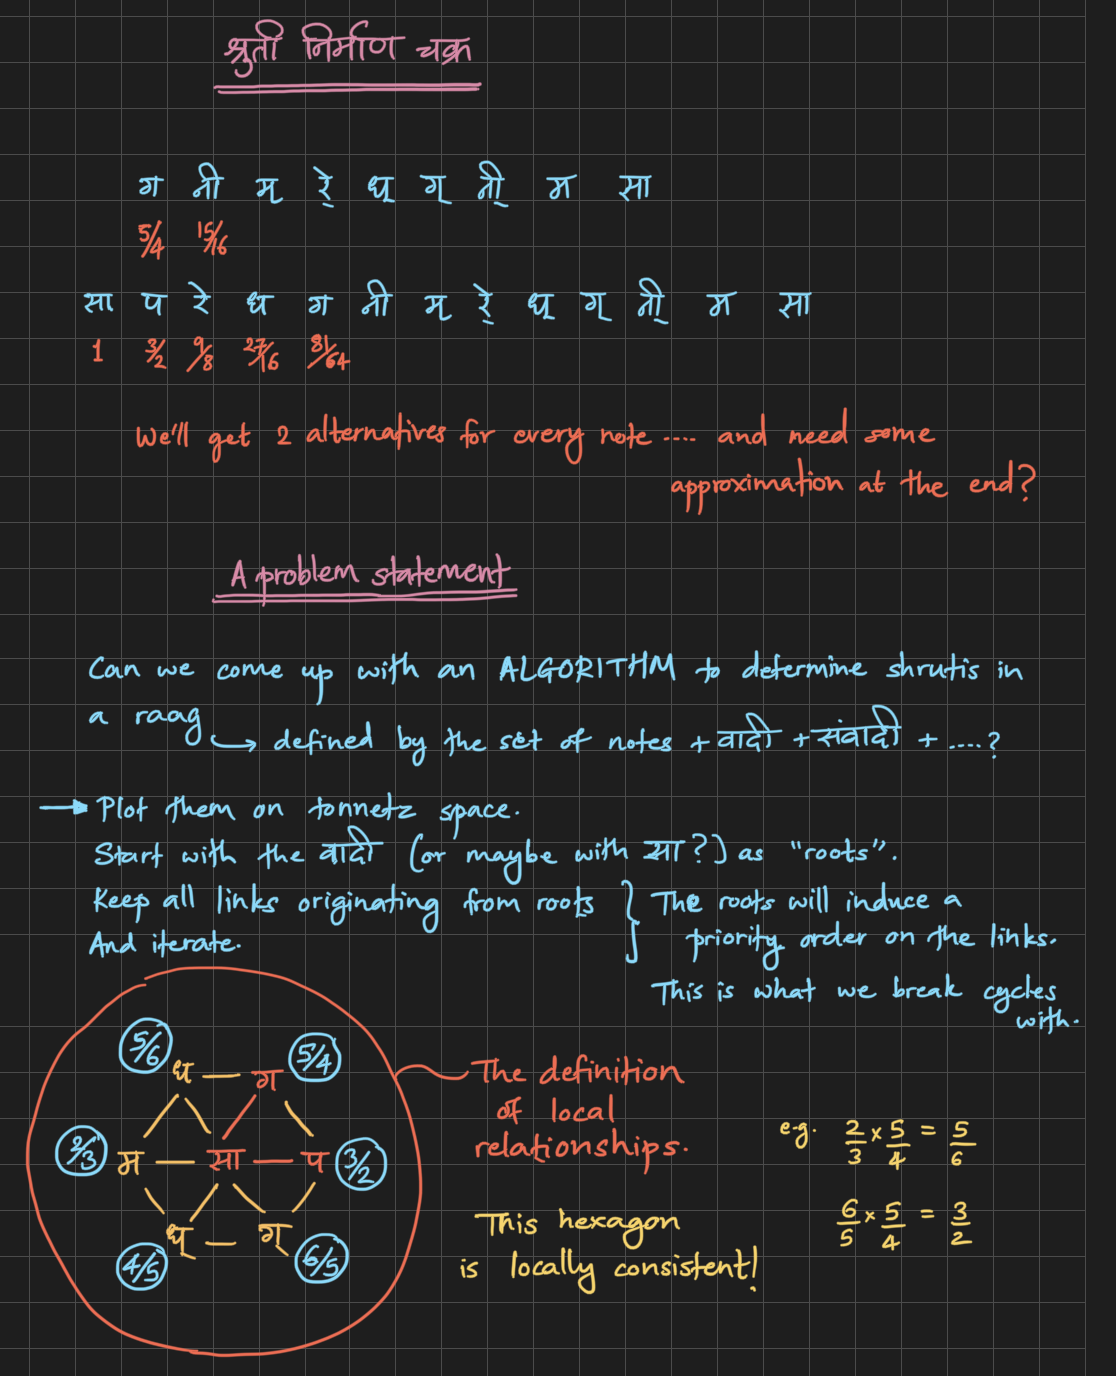 श्रुती निर्माण चक्र
ग नी म् रे् ध् ग् नी् म सा
5/4 15/16
सा प रे ध ग नी म् रे् ध् ग् नी् म सा
1 3/2 9/8 27/16 81/64
We'll get 2 alternatives for every note .... and need some
approximation at the end?
A problem statement
Can we come up with an ALGORITHM to determine shrutis in
a raag
↳ defined by the set of notes + वादी + संवादी + ....?
→ Plot them on tonnetz space.
Start with the वादी (or maybe with सा?) as "roots".
Keep all links originating from roots } The roots will induce a
And iterate. priority order on the links.
This is what we break cycles
with.
5/6 ध — ग 5/4
The definition
of local
relationships.
2/3 म — सा — प 3/2
e.g. 2/3 × 5/4 = 5/6
6/5 × 5/4 = 3/2
This hexagon
is locally consistent!
4/5 ध् — ग् 6/5